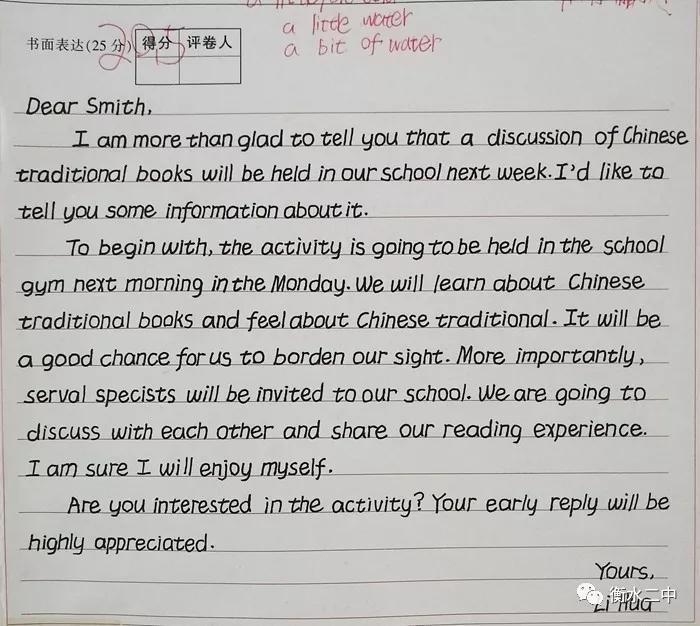 a little water
a bit of water
书面表达(25分) 得分 评卷人
Dear Smith,
I am more than glad to tell you that a discussion of Chinese
traditional books will be held in our school next week. I'd like to
tell you some information about it.
To begin with, the activity is going to be held in the school
gym next morning in the Monday. We will learn about Chinese
traditional books and feel about Chinese traditional. It will be
a good chance for us to borden our sight. More importantly,
serval specists will be invited to our school. We are going to
discuss with each other and share our reading experience.
I am sure I will enjoy myself.
Are you interested in the activity? Your early reply will be
highly appreciated.
Yours,
衡水二中
Li Hua